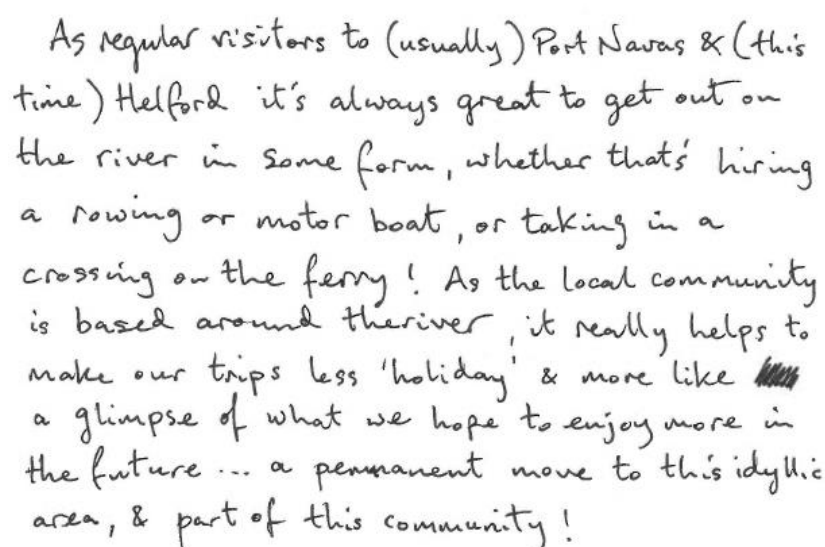 As regular visitors to (usually) Port Navas & (this
time) Helford it's always great to get out on
the river in some form, whether that's hiring
a rowing or motor boat, or taking in a
crossing on the ferry! As the local community
is based around theriver, it really helps to
make our trips less 'holiday' & more like
a glimpse of what we hope to enjoy more in
the future... a permanent move to this idyllic
area, & part of this community!